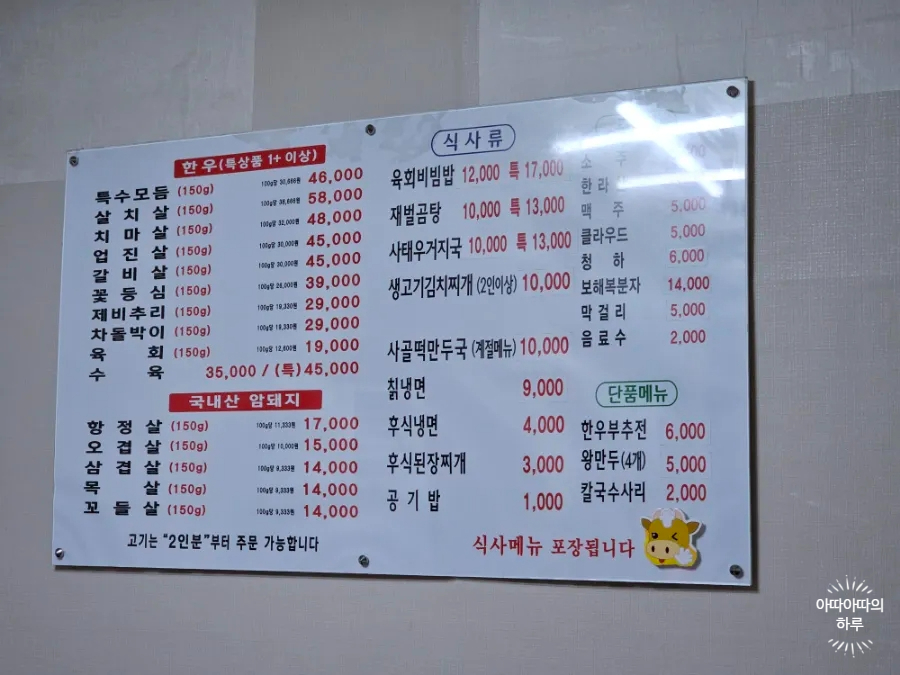 한우(특상품 1+ 이상)
특수모듬 (150g) 100g당 30,666원 46,000
살치살 (150g) 100g당 38,666원 58,000
치마살 (150g) 100g당 32,000원 48,000
업진살 (150g) 100g당 30,000원 45,000
갈비살 (150g) 100g당 30,000원 45,000
꽃등심 (150g) 100g당 26,000원 39,000
제비추리 (150g) 100g당 19,330원 29,000
차돌박이 (150g) 100g당 19,330원 29,000
육회 (150g) 100g당 12,600원 19,000
수육 35,000 / (특)45,000
국내산 암돼지
항정살 (150g) 100g당 11,333원 17,000
오겹살 (150g) 100g당 10,000원 15,000
삼겹살 (150g) 100g당 9,333원 14,000
목살 (150g) 100g당 9,333원 14,000
꼬들살 (150g) 100g당 9,333원 14,000
고기는 "2인분"부터 주문 가능합니다
식사류
육회비빔밥 12,000 특 17,000
재벌곰탕 10,000 특 13,000
사태우거지국 10,000 특 13,000
생고기김치찌개 (2인이상) 10,000
사골떡만두국 (계절메뉴) 10,000
칡냉면 9,000
후식냉면 4,000
후식된장찌개 3,000
공기밥 1,000
소주
맥주 5,000
클라우드 5,000
청하 6,000
보해복분자 14,000
막걸리 5,000
음료수 2,000
단품메뉴
한우부추전 6,000
왕만두(4개) 5,000
칼국수사리 2,000
식사메뉴 포장됩니다
아따아따의
하루